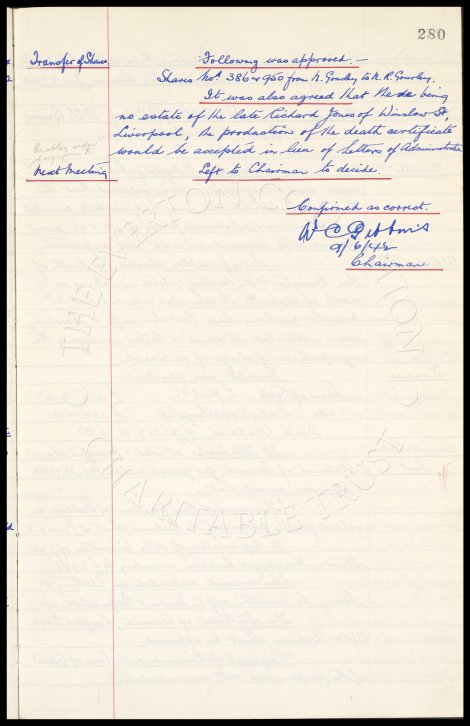 280
Transfer of Shares
Following was approved:—
Shares Nos. 386 & 950 from N. Gourley to N. R. Gourley.
It was also agreed that there being
no estate of the late Richard Jones of Winslow St.
Liverpool, the production of the death certificate
would be accepted in lieu of Letters of Administration
Next Meeting
Left to Chairman to decide.
Confirmed as correct.
W C Gibbins
9/6/42
Chairman.
THE EVERTON COLLECTION
CHARITABLE TRUST